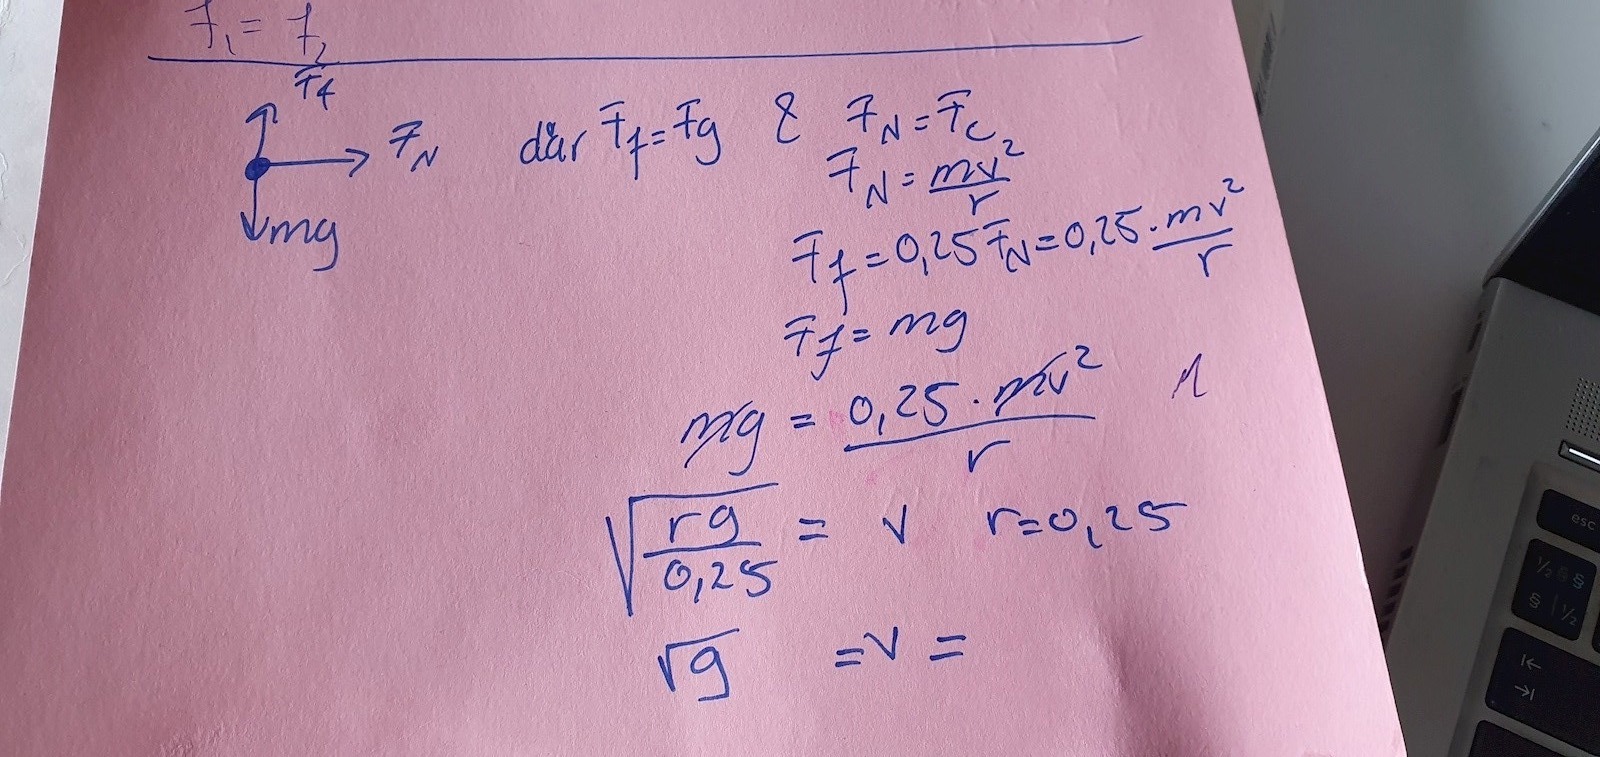 F₁ = F₂
F_f
F_N
där F_f = F_g & F_N = F_c
mg
F_N = mv²/r
F_f = 0,25 F_N = 0,25 · mv²/r
F_f = mg
mg = 0,25 · mv²/r
√(rg/0,25) = v r = 0,25
√g = v =
esc
½ § §
§ | ½